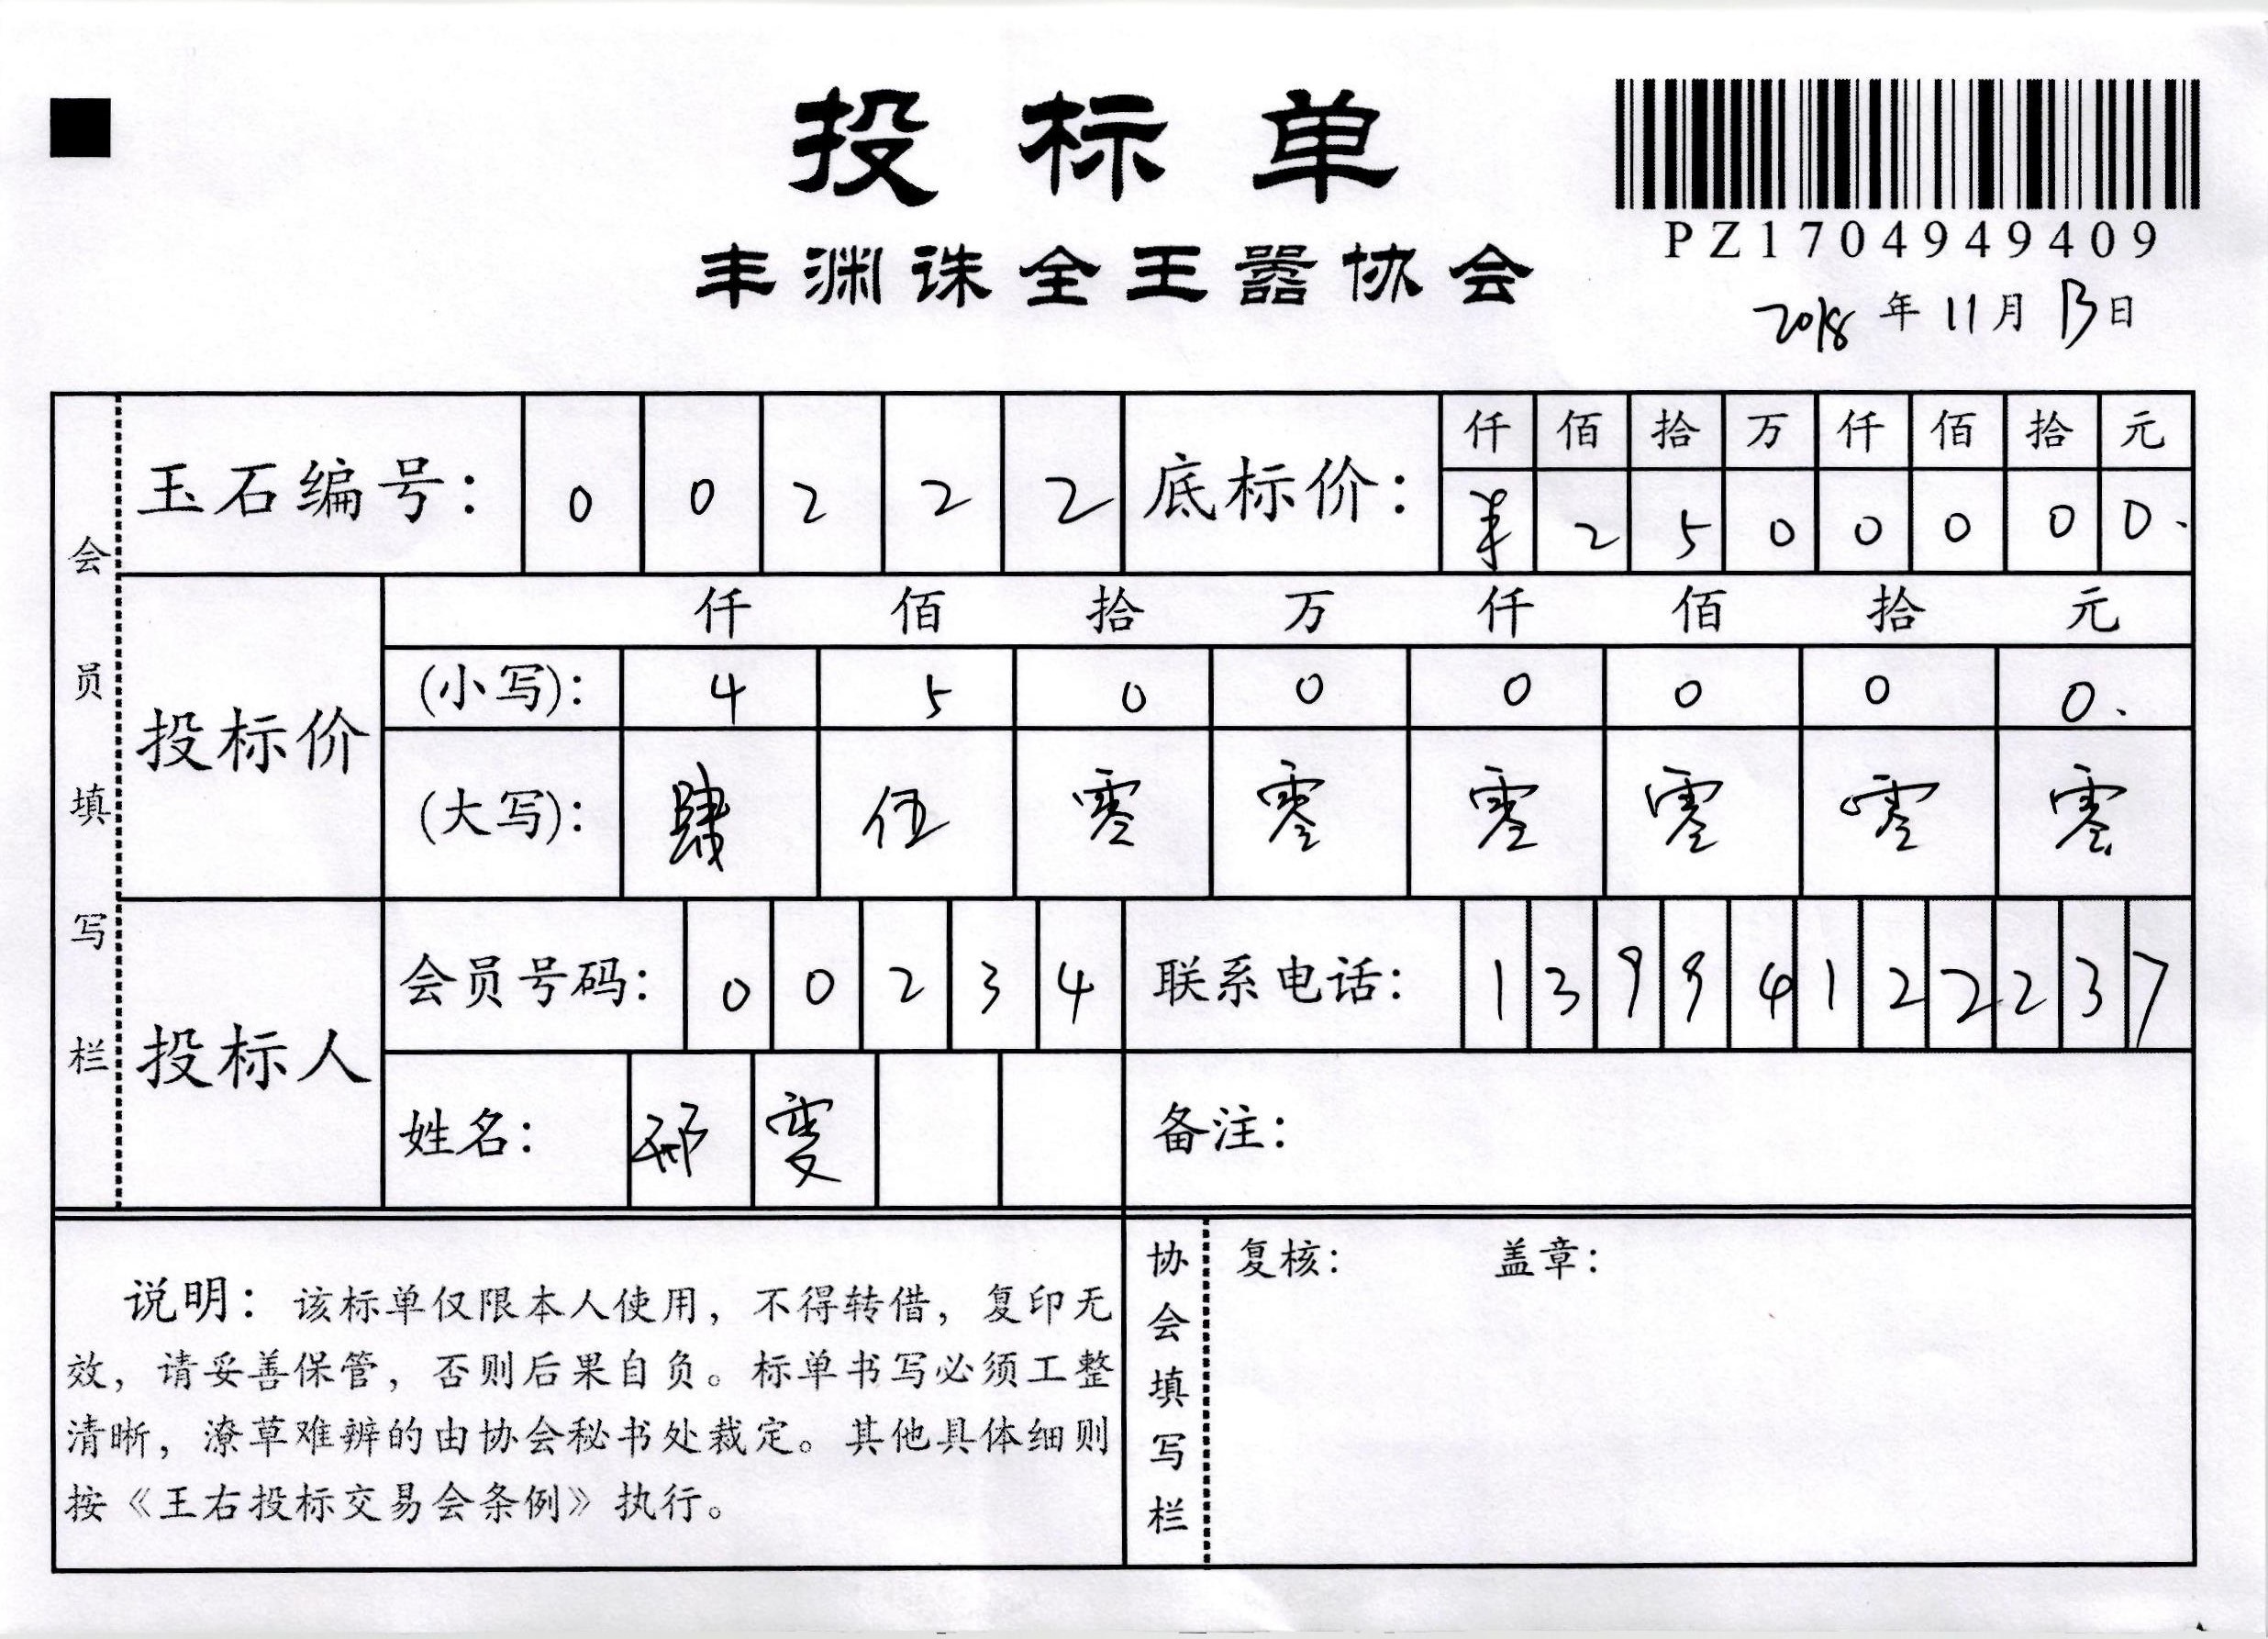 投标单
PZ1704949409
丰渊诛全王嚣协会
2018年11月13日
会员填写栏
玉石编号： 0 0 2 2 2
底标价： 仟 佰 拾 万 仟 佰 拾 元
¥ 2 5 0 0 0 0 0.
投标价
仟 佰 拾 万 仟 佰 拾 元
(小写)： 4 5 0 0 0 0 0 0.
(大写)： 肆 伍 零 零 零 零 零 零
投标人
会员号码： 0 0 2 3 4
联系电话： 1 3 9 9 4 1 2 2 2 3 7
姓名： 邢
备注：
说明：该标单仅限本人使用，不得转借，复印无
效，请妥善保管，否则后果自负。标单书写必须工整
清晰，潦草难辨的由协会秘书处裁定。其他具体细则
按《王右投标交易会条例》执行。
协会填写栏
复核： 盖章：